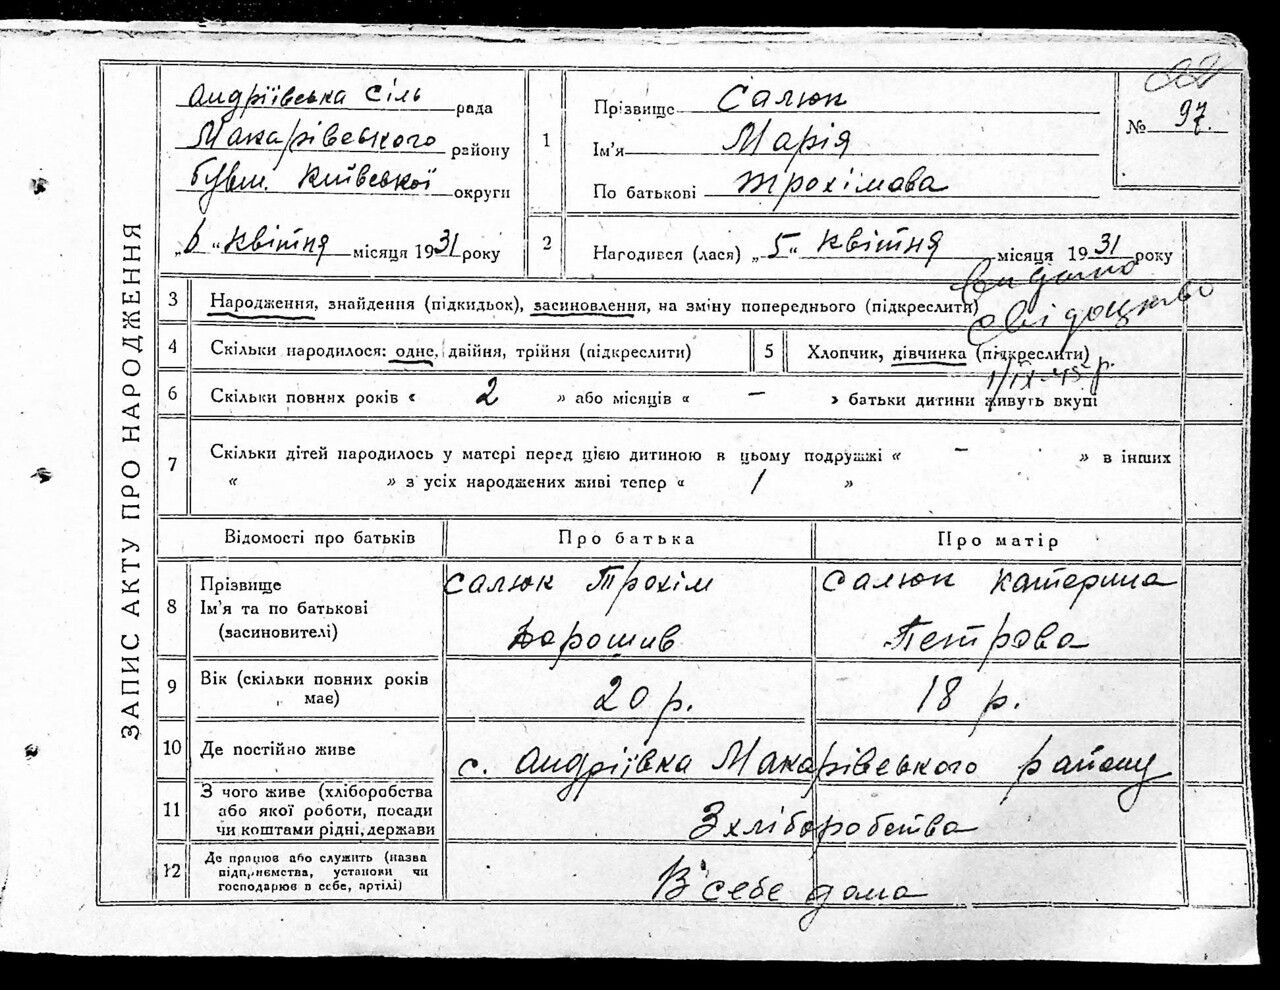 ЗАПИС АКТУ ПРО НАРОДЖЕННЯ
Андріївська Сіль рада
Макарівського району
Київської округи
„6“ Квітня місяця 1931 року
1
Прізвище Салюк
Ім'я Марія
По батькові Трохімова
№ 97.
2 Народився (лася) „5“ Квітня місяця 1931 року
Видано
Свідоцтво
3 Народження, знайдення (підкидьок), засиновлення, на зміну попереднього (підкреслити)
4 Скільки народилося: одне, двійня, трійня (підкреслити)
5 Хлопчик, дівчинка (підкреслити)
1/IX-45 р.
6 Скільки повних років « 2 » або місяців « – » батьки дитини живуть вкупі
7 Скільки дітей народилось у матері перед цією дитиною в цьому подружжі « – » в інших
« » з усіх народжених живі тепер « 1 »
Відомості про батьків Про батька Про матір
8 Прізвище
Ім'я та по батькові
(засиновителі)
Салюк Трохім
Салюк Катерина
Петрова
9 Вік (скільки повних років
має)
20 р. 18 р.
10 Де постійно живе с. Андріївка Макарівського району
11 З чого живе (хліборобства
або якої роботи, посади
чи коштами рідні, держави
З хліборобства
12 Де працює або служить (назва
підприємства, установи чи
господарює в себе, артілі)
В себе дома